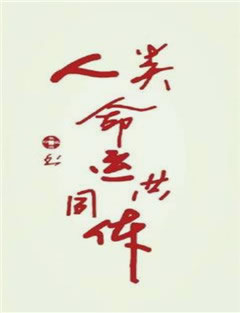 人类
命运共
同体